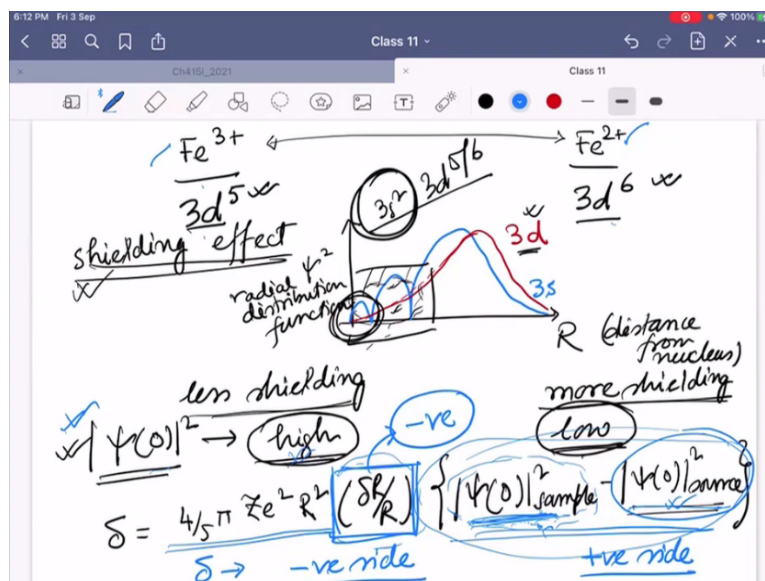 6:12 PM Fri 3 Sep
100%
Class 11
Ch415I_2021
Class 11
Fe³⁺
Fe²⁺
3d⁵
3s² 3d⁵/⁶
3d⁶
shielding effect
3d
radial ψ²
distribution
function
3s
R (distance
from
nucleus)
less shielding
more shielding
-ve
|ψ(0)|² → high
low
δ = 4/5 π Ze² R² (δR/R) { |ψ(0)|² sample - |ψ(0)|² source }
δ → -ve side
+ve side